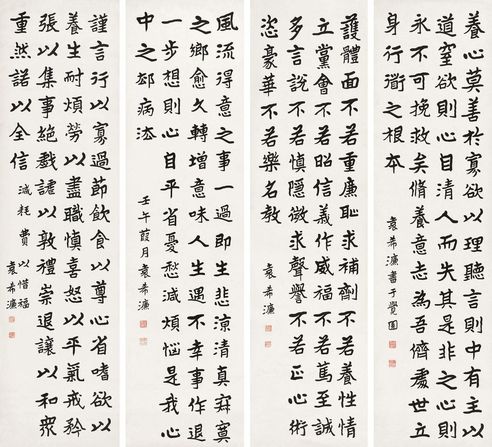 養心莫善於寡欲以理聽言則中有主以
道窒欲則心目清人而失其是非之心則
永不可挽救矣脩養意志為吾儕處世立
身行衜之根本
袁希濂書于覺園
護體面不若重廉恥求補劑不若養性情
立黨會不若昭信義作威福不若篤至誠
多言說不若慎隱微求聲譽不若正心術
恣豪華不若樂名教
袁希濂
風流得意之事一過即生悲涼清真寂寞
之鄉愈久轉增意味人生遇不幸事作退
一步想則心自平省憂愁減煩惱是我心
中之郤病法
壬午葭月袁希濂
謹言行以寡過節飲食以尊心省嗜欲以
養生耐煩勞以盡職慎喜怒以平氣戒矜
張以集事絕戲謔以敦禮崇退讓以和眾
重然諾以全信減耗費以惜福
袁希濂